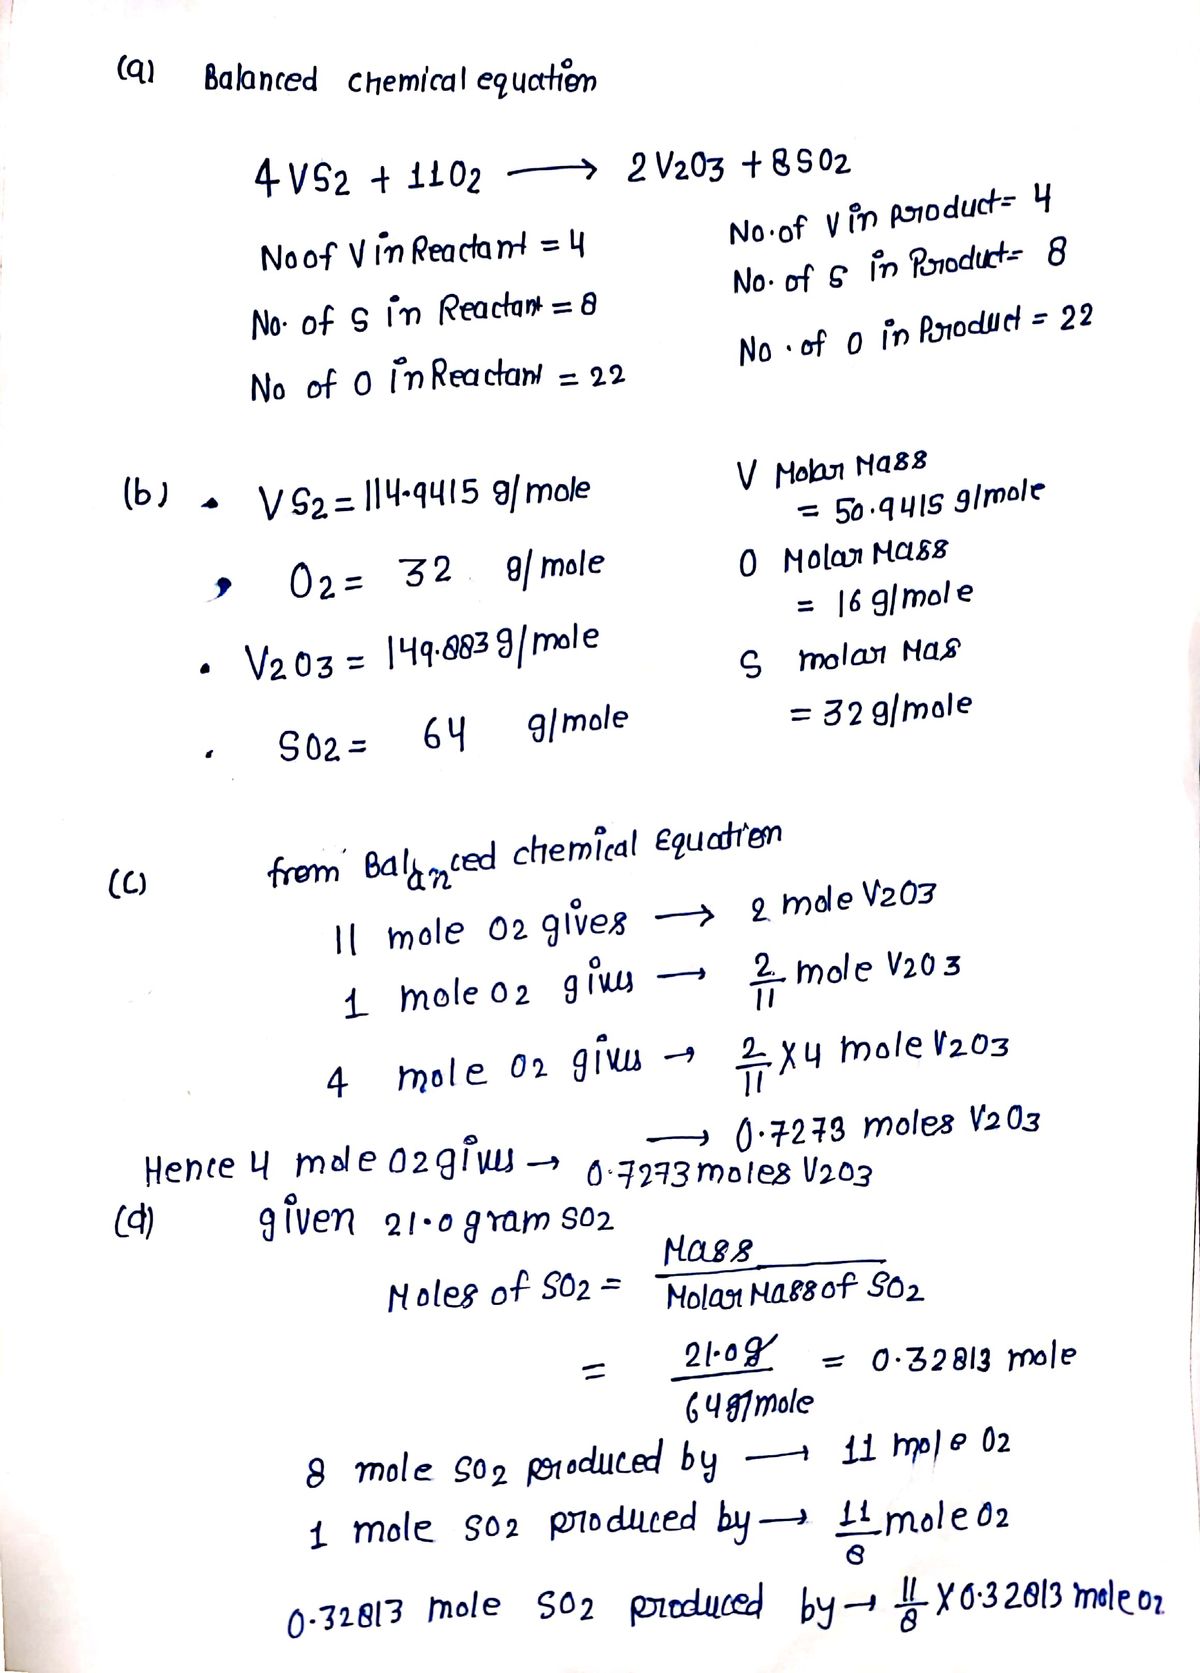 (a) Balanced chemical equation
4 VS2 + 11O2 ⟶ 2 V2O3 + 8SO2
No of V in Reactant = 4 No. of V in product = 4
No. of S in Reactant = 8 No. of S in Product = 8
No of O in Reactant = 22 No. of O in Product = 22
(b) • VS2 = 114.9415 g/mole V Molar Mass
= 50.9415 g/mole
, O2 = 32 g/mole O Molar Mass
= 16 g/mole
• V2O3 = 149.883 g/mole S molar Mas
. SO2 = 64 g/mole = 32 g/mole
(c) from Balanced chemical Equation
11 mole O2 gives → 2 mole V2O3
1 mole O2 gives → 2/11 mole V2O3
4 mole O2 gives → 2/11 X 4 mole V2O3
→ 0.7273 moles V2O3
Hence 4 mole O2 gives → 0.7273 moles V2O3
(d) given 21.0 gram SO2
Moles of SO2 = Mass / Molar Mass of SO2
= 21.0g / 64 g/mole = 0.32813 mole
8 mole SO2 produced by → 11 mole O2
1 mole SO2 produced by → 11/8 mole O2
0.32813 mole SO2 produced by → 11/8 X 0.32813 mole O2